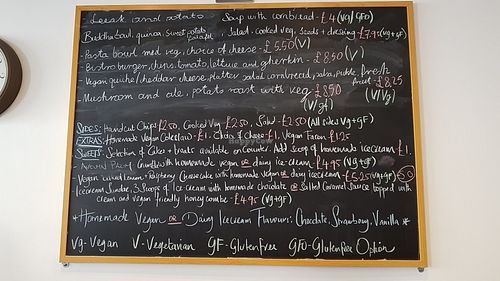 - Leek and potato Soup with cornbread - £4 (Vg/GFO)
- Buddha bowl, quinoa, Sweet potato falafel, Salad - cooked veg, Seeds + dressing - £7.95 (vg+GF)
- Pasta bowl med veg, choice of cheese - £5.50 (V)
- Bistro burger, chips, tomato, lettuce and gherkin - £8.50 (V)
- Vegan quiche/cheddar cheese, platter salad cornbread, salsa, pickle fresh fruit - £8.25 (V/Vg)
- Mushroom and ale, potato roast with veg - £8.50 (V/gf)
SIDES: Handcut Chips £2.50, Cooked Veg - £2.50, Salad - £2.50 (All sides Vg+GF)
EXTRAS: Homemade Vegan Coleslaw - £1, Choice of Cheese - £1, Vegan Bacon £1.25
SWEETS: Selection of Cakes + treats available on Counter. Add Scoop of homemade icecream £1.
Crumble with homemade vegan OR dairy ice-cream - £4.95 (vg+gf)
- Vegan baked Lemon + Raspberry Cheesecake with homemade vegan OR dairy icecream - £5.25 (vg+gf)
- Icecream Sundae, 3 Scoops of Ice cream with homemade chocolate OR Salted Caramel Sauce topped with
cream and vegan friendly honeycombe - £4.95 (vg+gf)
* Homemade Vegan OR Dairy Icecream Flavours: Chocolate, Strawberry, Vanilla *
Vg - Vegan V - Vegetarian GF - Glutenfree GFO - Glutenfree Option
HappyCow